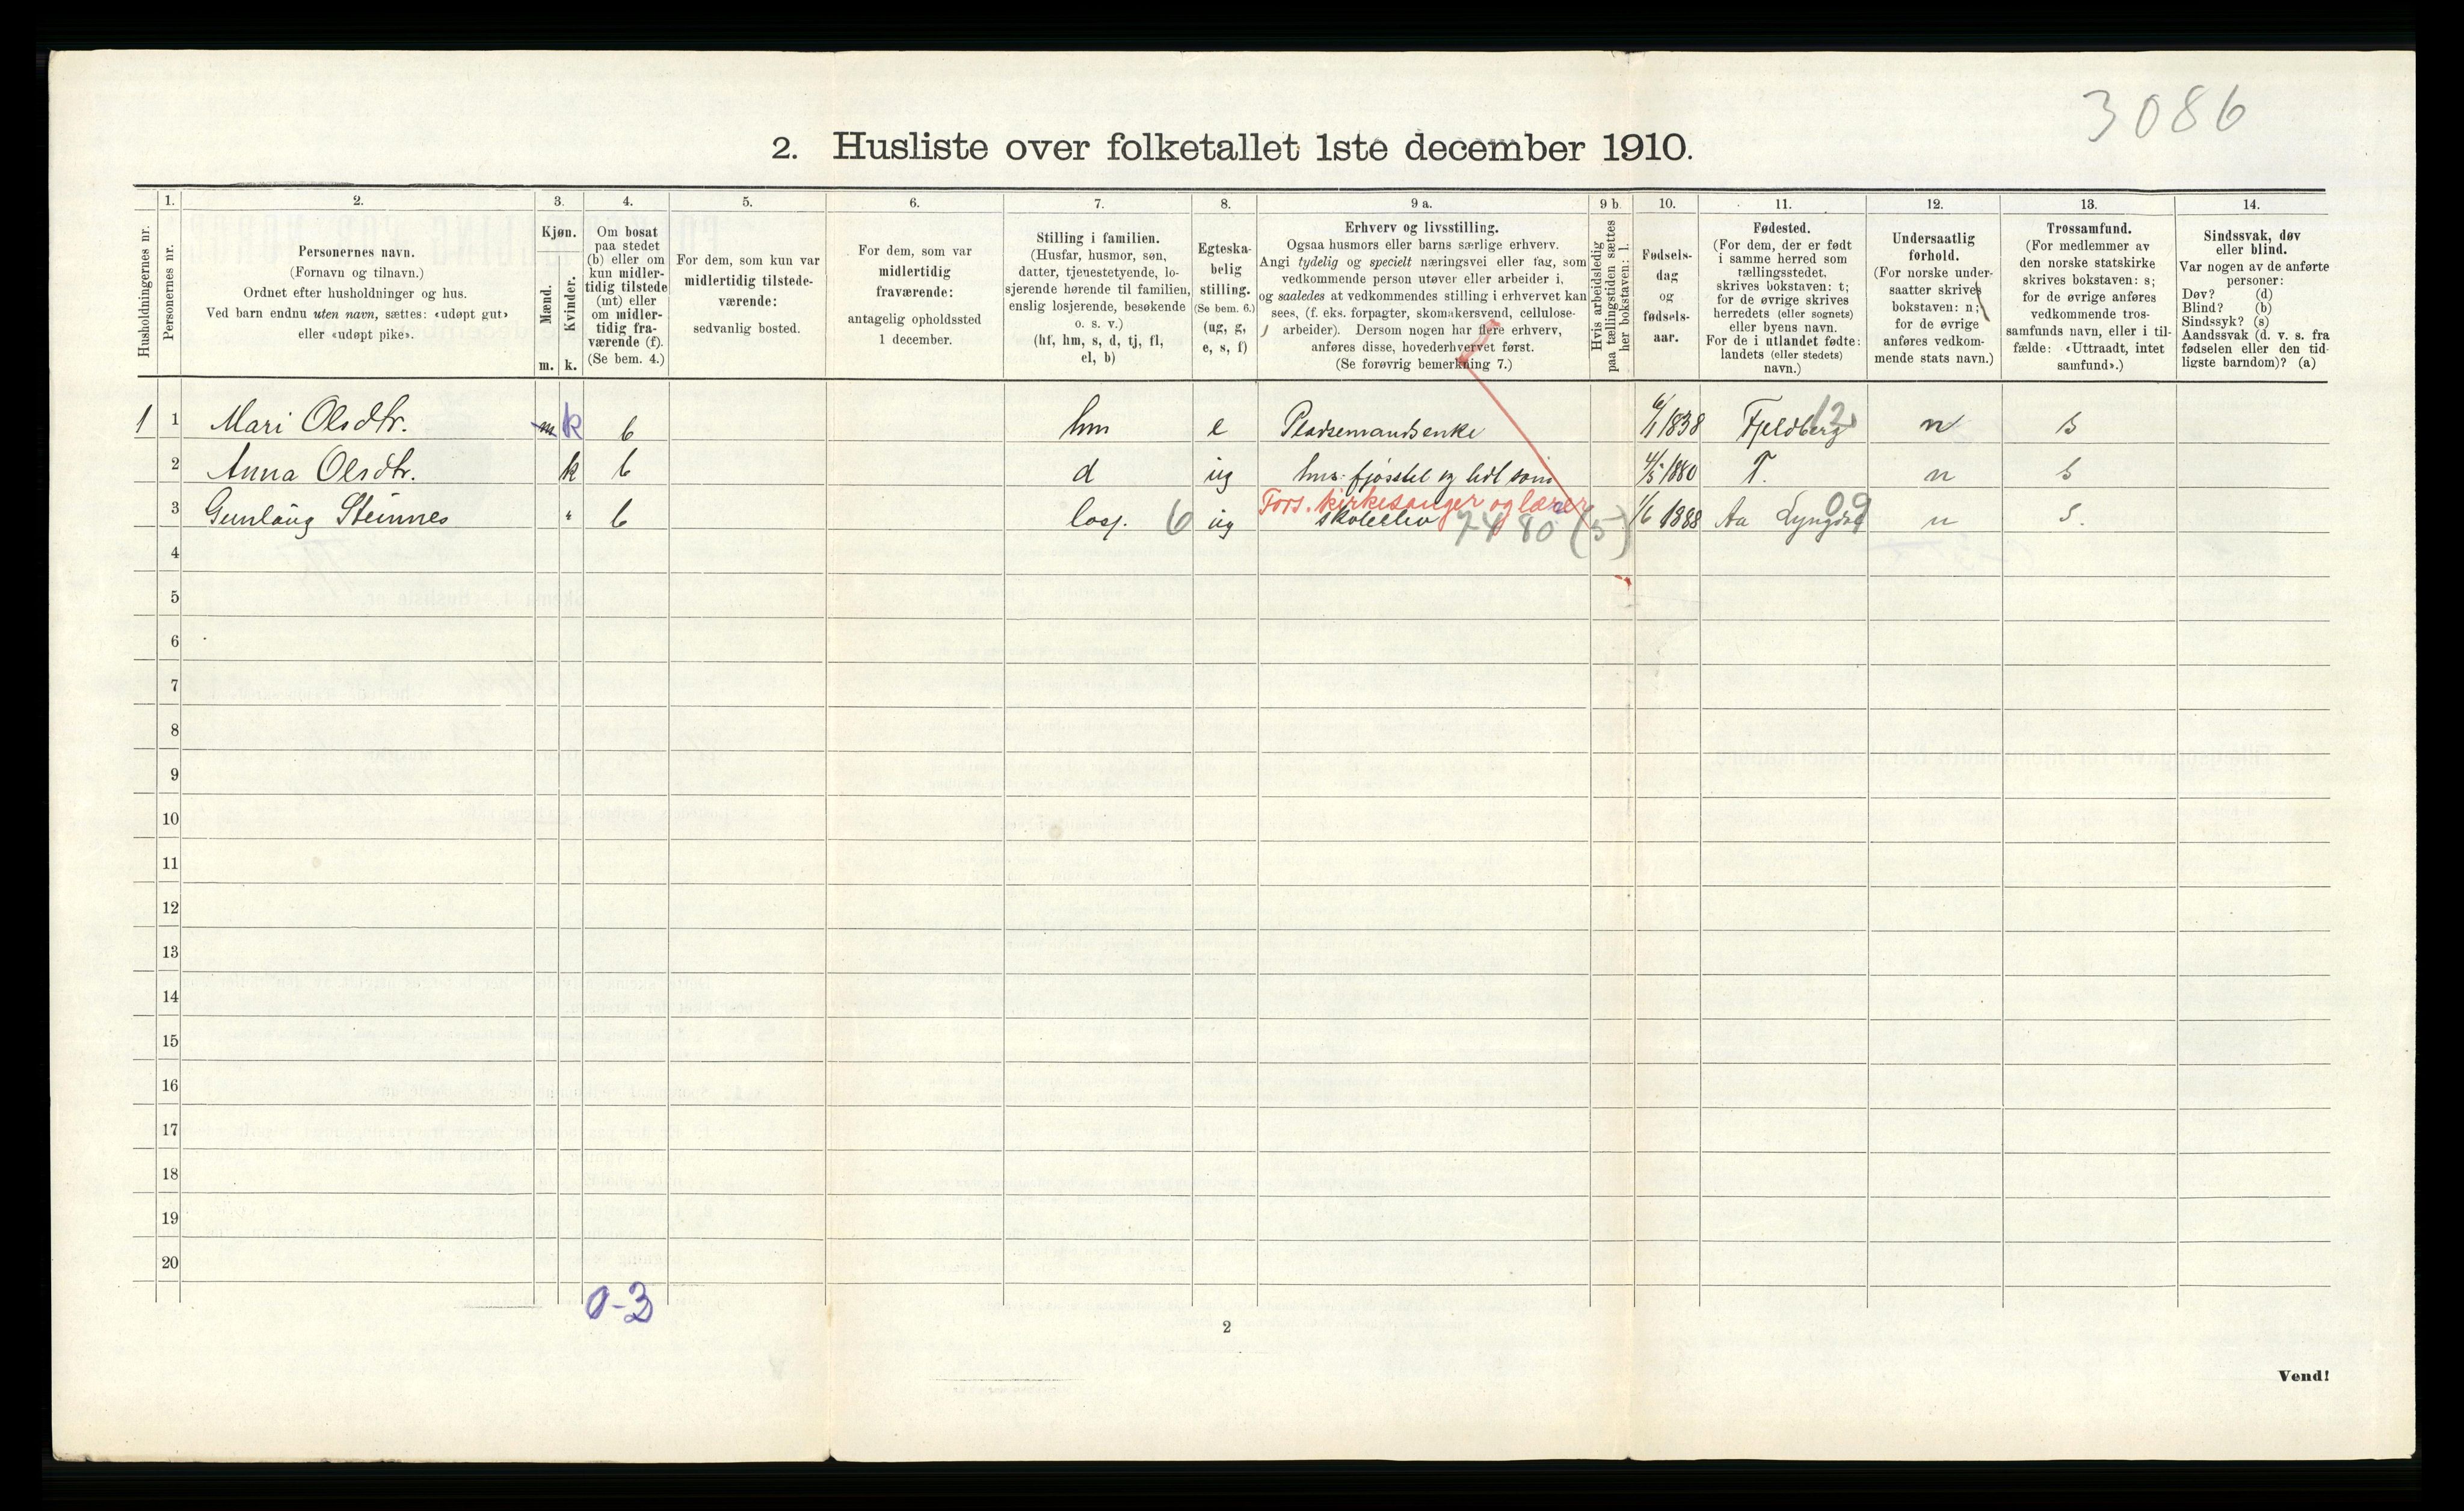 3086
2. Husliste over folketallet 1ste december 1910.
Husholdningernes nr.
1.
Personernes nr.
2.
Personernes navn.
(Fornavn og tilnavn.)
Ordnet efter husholdninger og hus.
Ved barn endnu uten navn, sættes: «udøpt gut»
eller «udøpt pike».
3.
Kjøn.
Mænd.
Kvinder.
m. k.
4.
Om bosat
paa stedet
(b) eller om
kun midler-
tidig tilstede
(mt) eller
om midler-
tidig fra-
værende (f).
(Se bem. 4.)
5.
For dem, som kun var
midlertidig tilstede-
værende:
sedvanlig bosted.
6.
For dem, som var
midlertidig
fraværende:
antagelig opholdssted
1 december.
7.
Stilling i familien.
(Husfar, husmor, søn,
datter, tjenestetyende, lo-
sjerende hørende til familien,
enslig losjerende, besøkende
o. s. v.)
(hf, hm, s, d, tj, fl,
el, b)
8.
Egteska-
belig
stilling.
(Se bem. 6.)
(ug, g,
e, s, f)
9 a.
Erhverv og livsstilling.
Ogsaa husmors eller barns særlige erhverv.
Angi tydelig og specielt næringsvei eller fag, som
vedkommende person utøver eller arbeider i,
og saaledes at vedkommendes stilling i erhvervet kan
sees, (f. eks. forpagter, skomakersvend, cellulose-
arbeider). Dersom nogen har flere erhverv,
anføres disse, hovederhvervet først.
(Se forøvrig bemerkning 7.)
9 b.
Hvis arbeidsledig
paa tællingstiden sættes
her bokstaven: l.
10.
Fødsels-
dag
og
fødsels-
aar.
11.
Fødested.
(For dem, der er født
i samme herred som
tællingsstedet,
skrives bokstaven: t;
for de øvrige skrives
herredets (eller sognets)
eller byens navn.
For de i utlandet fødte:
landets (eller stedets)
navn.)
12.
Undersaatlig
forhold.
(For norske under-
saatter skrives
bokstaven: n;
for de øvrige
anføres vedkom-
mende stats navn.)
13.
Trossamfund.
(For medlemmer av
den norske statskirke
skrives bokstaven: s;
for de øvrige anføres
vedkommende tros-
samfunds navn, eller i til-
fælde: «Uttraadt, intet
samfund».)
14.
Sindssvak, døv
eller blind.
Var nogen av de anførte
personer:
Døv? (d)
Blind? (b)
Sindssyk? (s)
Aandssvak (d. v. s. fra
fødselen eller den tid-
ligste barndom)? (a)
1 1 Mari Olsdtr. m k b hm e Pladsemandsenke 1838 Fjeldberg 12 n s
2 Anna Olsdtr. k b d ug hus- fjøsstel og lidt søm 4/5 1880 T. n s
Fors. kirkesanger og lærer
3 Gunlaug Steinnes " b losj. 6 ug skoleelev 7480 (5) 1/6 1888 Aa Lyngdal 09 n s.
4
5
6
7
8
9
10
11
12
13
14
15
16
17
18
19
20
0-3
2
Vend!